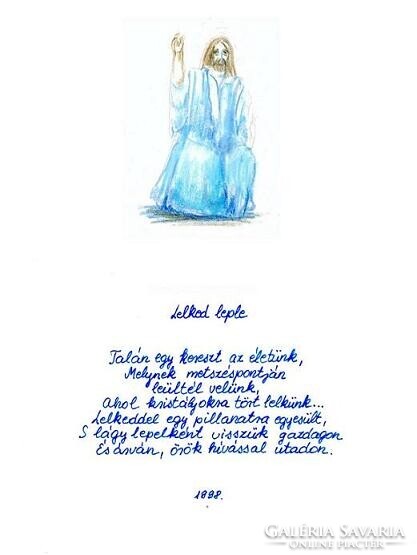 Lelked leple
Talán egy kereszt az életünk,
Melynek metszéspontján
leültél velünk,
Ahol kristályokra tört lelkünk...
Lelkeddel egy pillanatra egyesült,
S lágy lepelként visszük gazdagon
És árván, örök hívással utadon.
1998.
GALÉRIA SAVARIA
ONLINE PIACTÉR